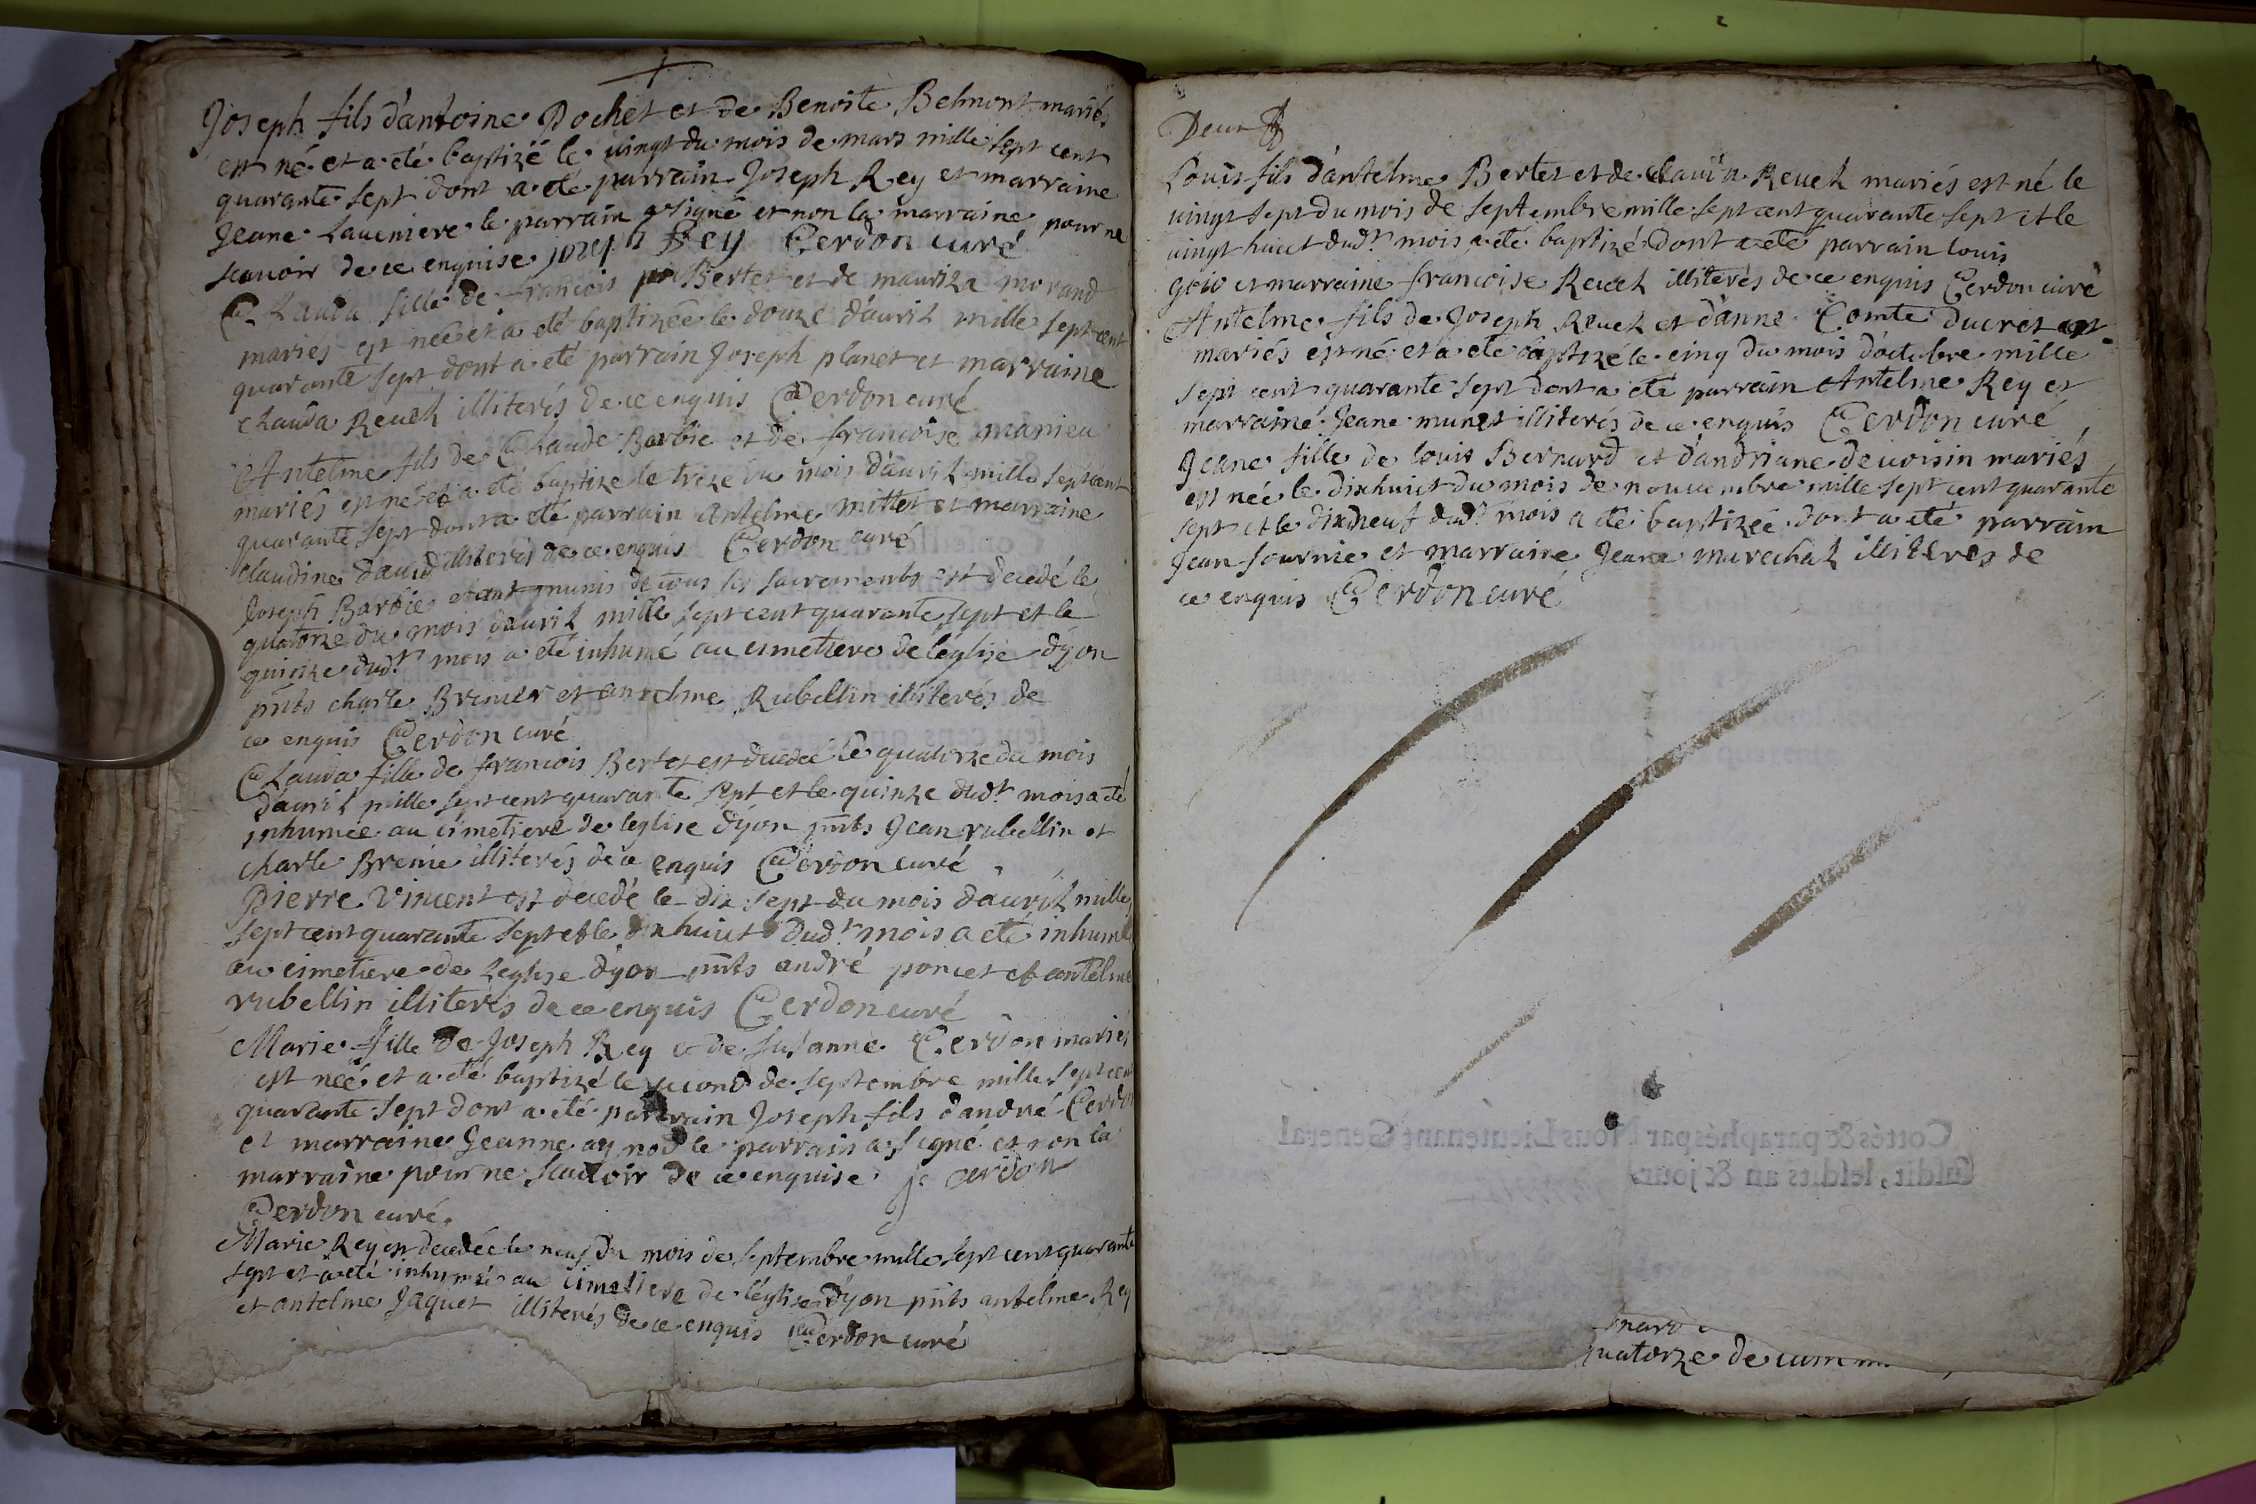 Joseph fils d'antoine Pochet et de Benoite Belmont mariés
est né et a été baptizé le vingt du mois de mars mille sept cent
quarante sept dont a été parrain Joseph Rey et marraine
Jeane Laveniere le parrain a signé et non la marraine pour ne
scavoir de ce enquise joseph Rey Cerdon curé
Clauda fille de francois Bertet et de mauriza morand
mariés est neé et a été baptizeé le douze d'avril mille sept cent
quarante sept dont a été parrain Joseph planet et marraine
clauda Revel illiterés de ce enquis Cerdon curé
Antelme fils de Claude Barbie et de francoise manieu
mariés est né et a été baptizé le treze du mois d'avril mille sept cent
quarante sept dont a été parrain antelme mittet et marraine
claudine david illiterés de ce enquis Cerdon curé
Joseph Barbier etant munis de tous les sacrements est decedé le
quatorze du mois d'avril mille sept cent quarante sept et le
quinze dud.t mois a été inhumé au cimetiere de l'eglise d'yon
pnts charle Brenier et antelme Rubellin illiterés de
ce enquis Cerdon curé
Clauda fille de francois Bertet est decedeé le quatorze du mois
d'avril mille sept cent quarante sept et le quinze dud.t mois a été
inhumeé au cimetiere de l'eglise d'yon pnts Jean rubellin et
charle Brenie illiterés de ce enquis Cerdon curé
Pierre Vincent est decedé le dix sept du mois d'avril mille
sept cent quarante sept et le dixhuict dud.t mois a été inhumé
au cimetiere de l'eglise d'yon pnts andré poncet et antelme
rubellin illiterés de ce enquis Cerdon curé
Marie fille de Joseph Rey et de Susanne Cerdon mariés
est neé et a été baptizé le second de septembre mille sept cent
quarante sept dont a été parrain Joseph fils d'andré Cerdon
et marraine Jeanne aynod le parrain a signé et non la
marraine pour ne scavoir de ce enquise j cerdon
Cerdon curé.
Marie Rey est decedeé le neuf du mois de septembre mille sept cent quarante
sept et a été inhumé au cimetiere de l'églize d'yon pnts antelme Rey
et antelme Jaquet illiterés de ce enquis Cerdon curé
Deux
Louis fils d'antelme Bertet et de clauda Revel mariés est né le
vingt sept du mois de septembre mille sept cent quarante sept et le
vingt huict dud.t mois a été baptizé dont a été parrain louis
goio et marraine francoise Revel illiterés de ce enquis Cerdon curé
Antelme fils de Joseph Revel et d'anne Comte ducret
mariés est né et a été baptizé le cinq du mois d'octobre mille
sept cent quarante sept dont a été parrain Antelme Rey et
marraine Jeane munet illiterés de ce enquis Cerdon curé
Jeane fille de louis Bernard et d'andriane devoisin mariés
est neé le dixhuict du mois de novembre mille sept cent quarante
sept et le dixneuf dud.t mois a été baptizeé dont a été parrain
Jean fournie et marraine Jeane marechal illiteres de
ce enquis Cerdon curé
Cottés & paraphés par Nous Lieutenant General
susdit, lesdits an & jour
quatorze de